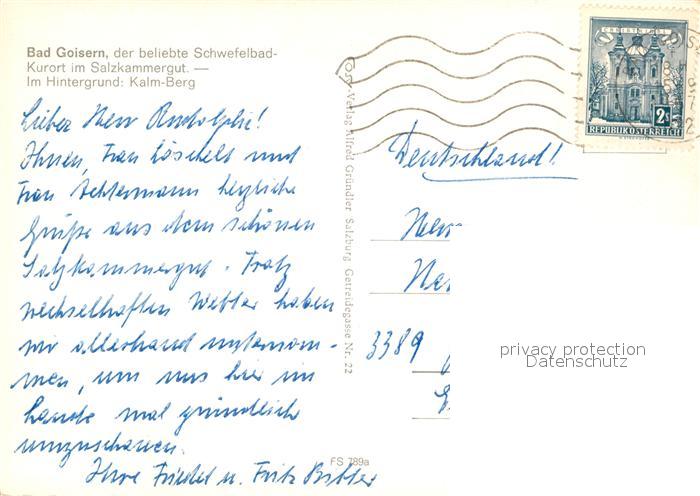 Bad Goisern, der beliebte Schwefelbad-
Kurort im Salzkammergut. —
Im Hintergrund: Kalm-Berg
Lieber Herr Rudolphi!
Ihnen, Frau Löschelt und
Frau Achtermann herzliche
Grüße aus dem schönen
Salzkammergut. Trotz
wechselhaften Wetter haben
wir allerhand unternom-
men, um uns hier im
Lande mal gründlich
umzuschauen.
Ihre Friedel u. Fritz
FS 789a
Öst.-Verlag Alfred Gründler Salzburg Getreidegasse Nr. 22
CHRISTKINDL
2S
REPUBLIK ÖSTERREICH
Deutschland!
Herr
3389
privacy protection
Datenschutz